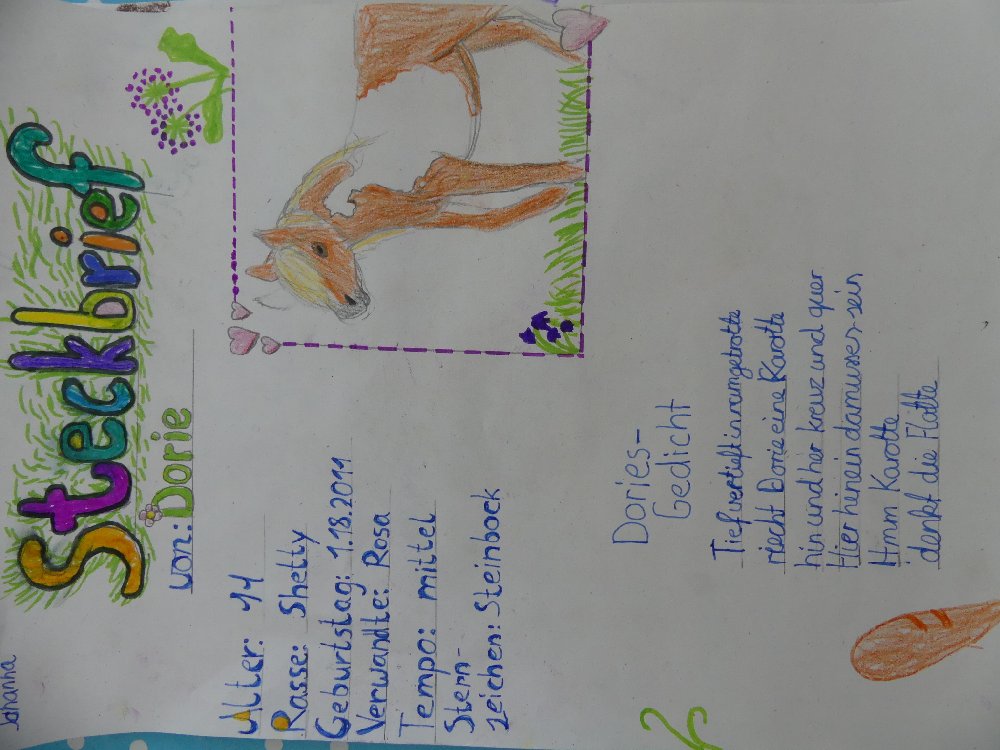 Johanna
Steckbrief
von: Dorie
Alter: 11
Rasse: Shetty
Geburtstag: 1.18.2011
Verwandte: Rosa
Tempo: mittel
Stern-
zeichen: Steinbock
Dories-
Gedicht
Tief vertieft in rumgetrotte
riecht Dorie eine Karotte
hin und her kreuz und quer
Hier hinein da muss er sein
Hmm Karotte
denkt die Flotte